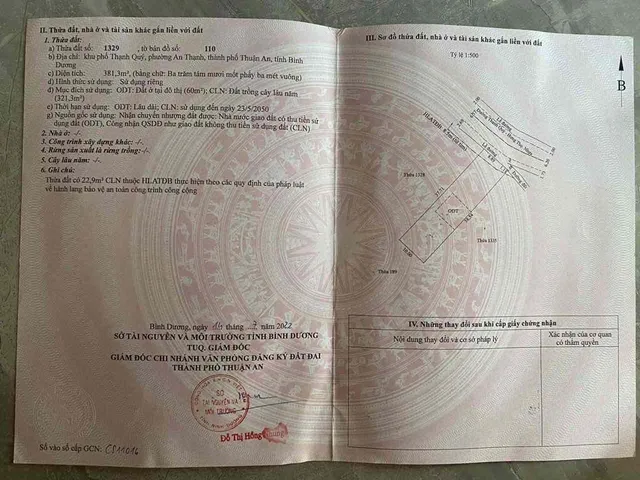 II. Thửa đất, nhà ở và tài sản khác gắn liền với đất
1. Thửa đất:
a) Thửa đất số: 1329, tờ bản đồ số: 110
b) Địa chỉ: khu phố Thạnh Quý, phường An Thạnh, thành phố Thuận An, tỉnh Bình
Dương
c) Diện tích: 381,3m², (bằng chữ: Ba trăm tám mươi mốt phẩy ba mét vuông)
d) Hình thức sử dụng: Sử dụng riêng
đ) Mục đích sử dụng: ODT: Đất ở tại đô thị (60m²); CLN: Đất trồng cây lâu năm
(321,3m²)
e) Thời hạn sử dụng: ODT: Lâu dài; CLN: sử dụng đến ngày 23/5/2050
g) Nguồn gốc sử dụng: Nhận chuyển nhượng đất được: Nhà nước giao đất có thu tiền sử
dụng đất (ODT), Công nhận QSDĐ như giao đất không thu tiền sử dụng đất (CLN)
2. Nhà ở: -/-
3. Công trình xây dựng khác: -/-
4. Rừng sản xuất là rừng trồng: -/-
5. Cây lâu năm: -/-
6. Ghi chú:
Thửa đất có 22,9m² CLN thuộc HLATĐB thực hiện theo các quy định của pháp luật
về hành lang bảo vệ an toàn công trình công cộng
Bình Dương, ngày tháng năm 2022
SỞ TÀI NGUYÊN VÀ MÔI TRƯỜNG TỈNH BÌNH DƯƠNG
TUQ. GIÁM ĐỐC
GIÁM ĐỐC CHI NHÁNH VĂN PHÒNG ĐĂNG KÝ ĐẤT ĐAI
THÀNH PHỐ THUẬN AN
SỞ
TÀI NGUYÊN VÀ
MÔI TRƯỜNG
Đỗ Thị Hồng Nhung
Số vào sổ cấp GCN: CS11016
III. Sơ đồ thửa đất, nhà ở và tài sản khác gắn liền với đất
Tỷ lệ 1:500
B
Lề đường
Lề đường
Thửa 1328
ODT
Thửa 189
10.00
IV. Những thay đổi sau khi cấp giấy chứng nhận
Nội dung thay đổi và cơ sở pháp lý
Xác nhận của cơ quan
có thẩm quyền